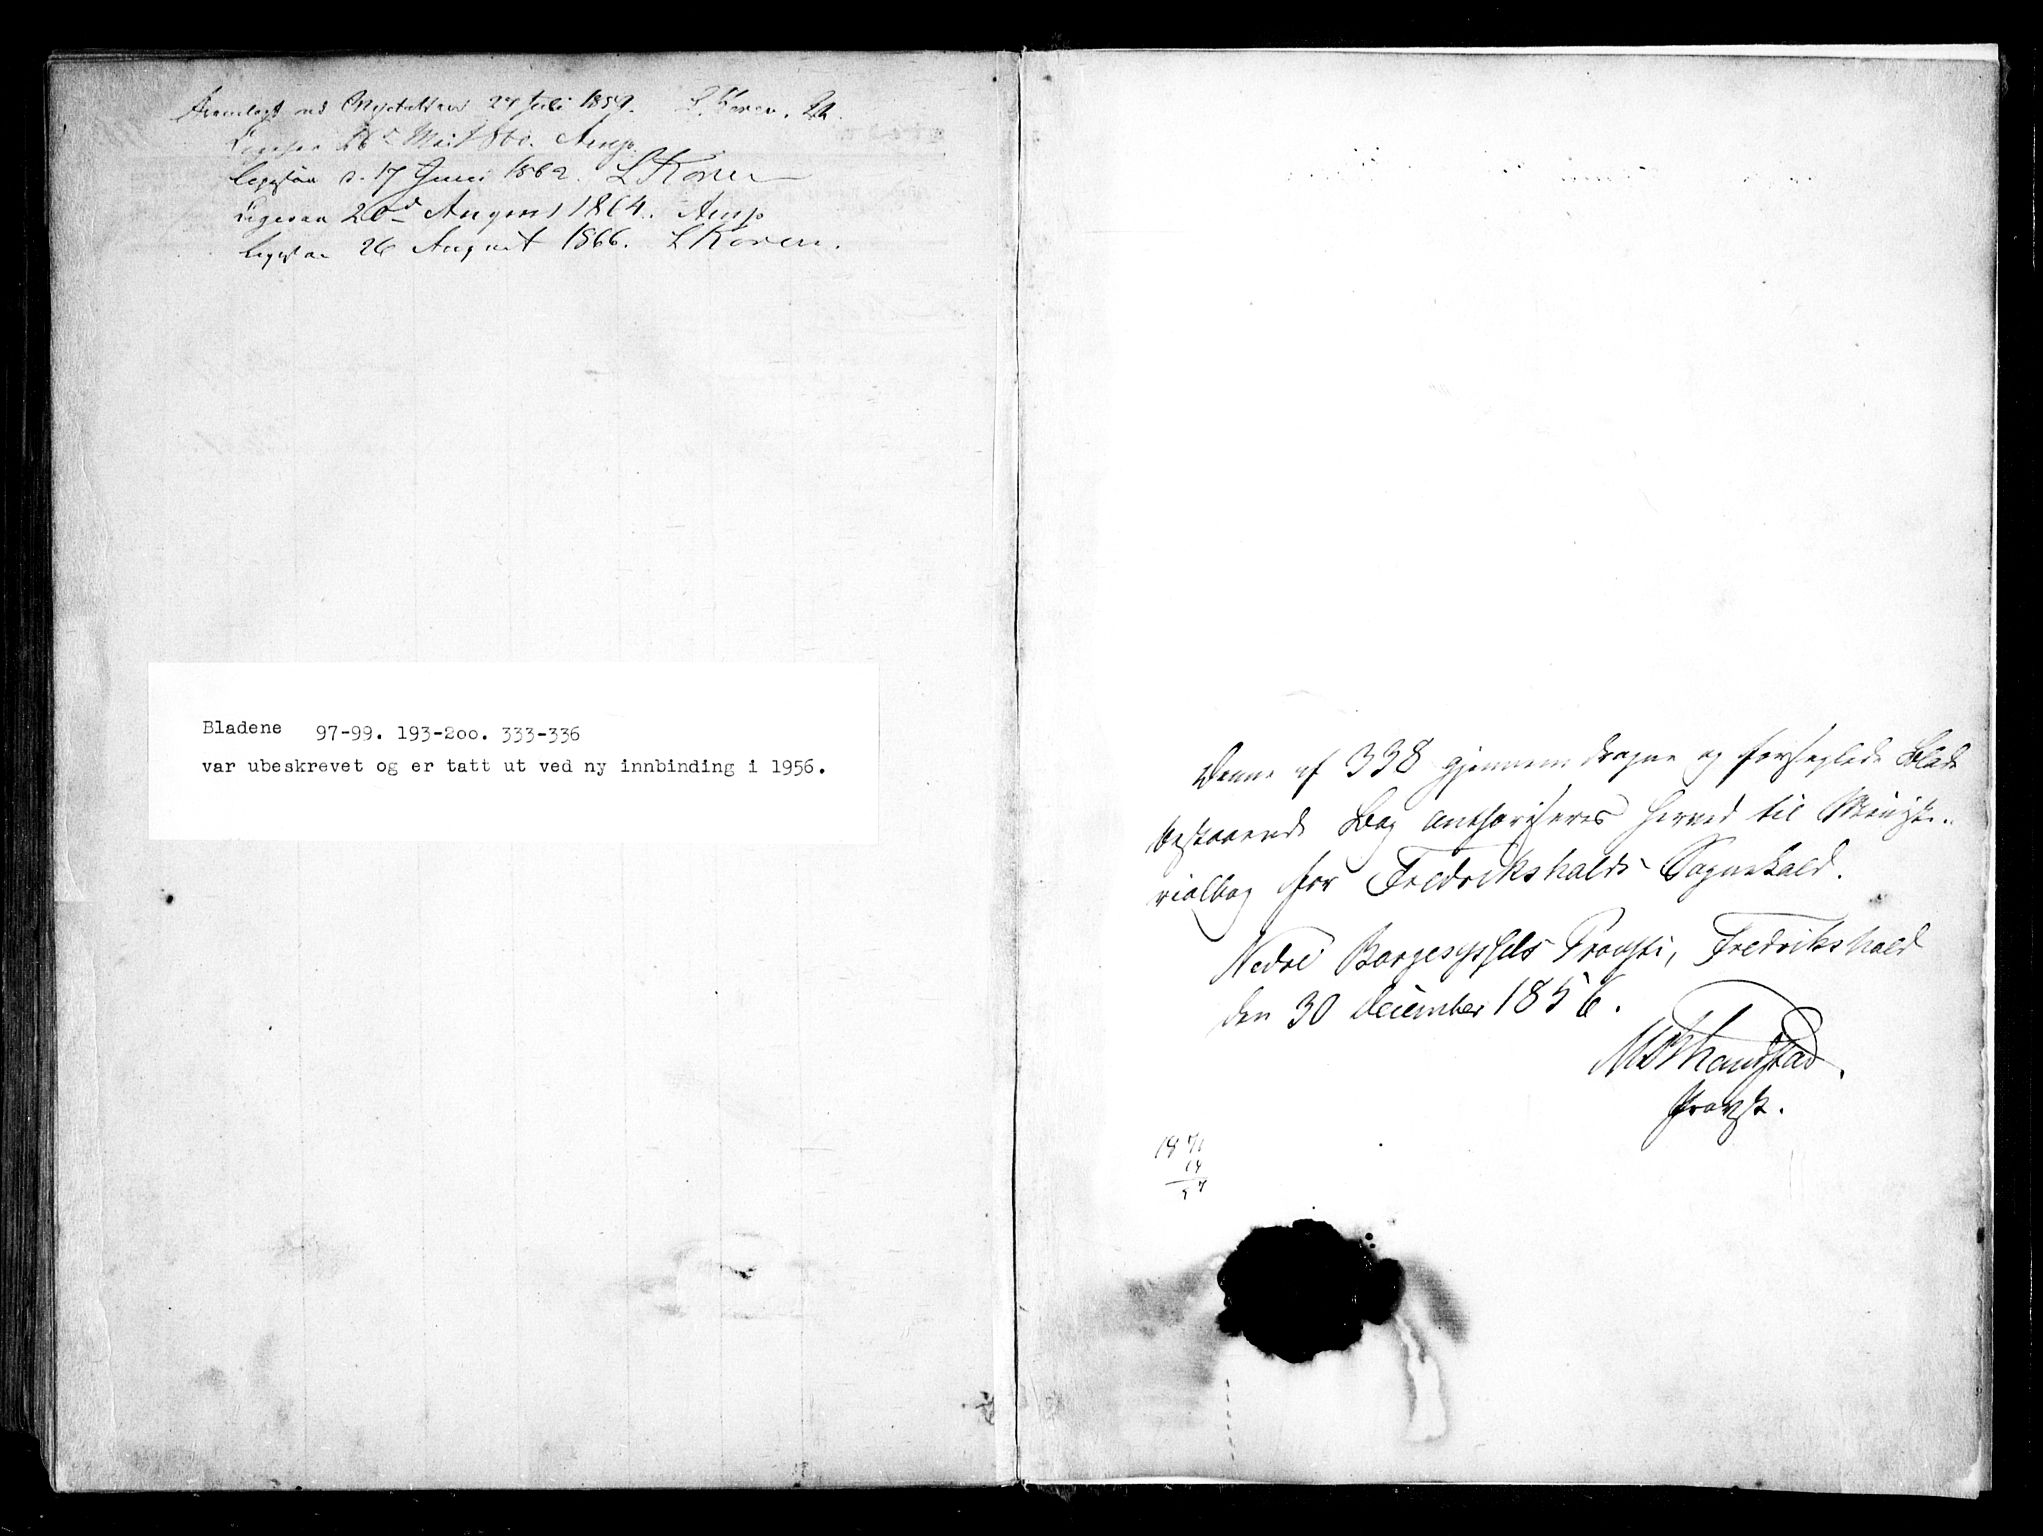 Fremlagt ved Visitatsen 27 Juli 1859. L. Koren.
Ligesaa Mai 1860.
Ligesaa d. 17 Juni 1862. L Koren
Ligesaa 20d August 1864.
Ligesaa 26 August 1866. L Koren.
Bladene 97-99. 193-2oo. 333-336
var ubeskrevet og er tatt ut ved ny innbinding i 1956.
Denne af 338 gjennemdragne og forseglede Blade
bestaaende Bog authoriseres herved til Ministe-
rialbog for Fredrikshalds Sognekald.
Nedre Borgesyssels Provsti, Fredrikshald
den 30 December 1856.
Provst.
1871
14
57